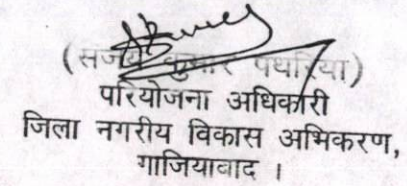 (संजय कुमार पथरिया)
परियोजना अधिकारी
जिला नगरीय विकास अभिकरण,
गाजियाबाद ।